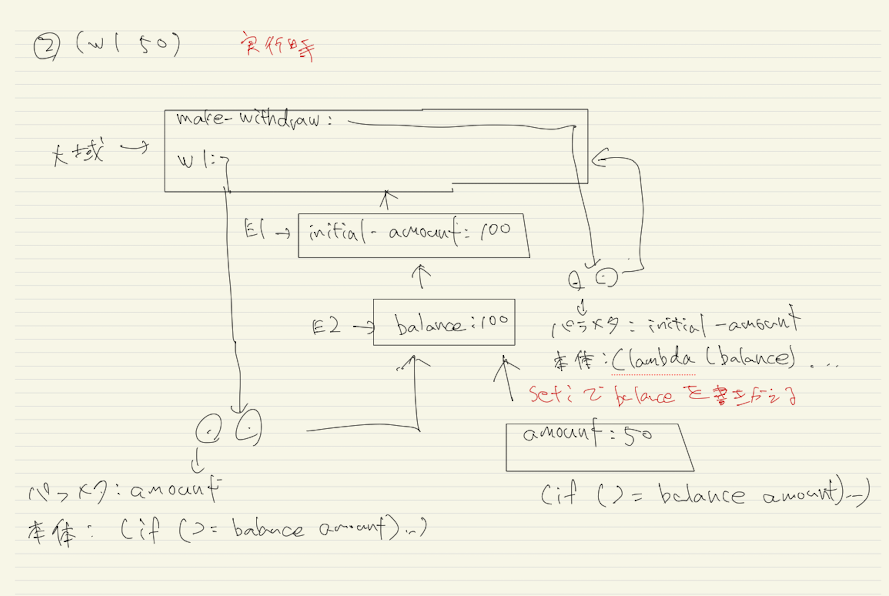 ② (w1 50) 実行時
make-withdraw:
大域 →
w1:
E1 → initial-amount: 100
E2 → balance:100
パラメタ: initial-amount
本体: (lambda (balance) ...
set! で balance を書きかえる
amount: 50
パラメタ: amount
(if (>= balance amount) …)
本体: (if (>= balance amount) …)